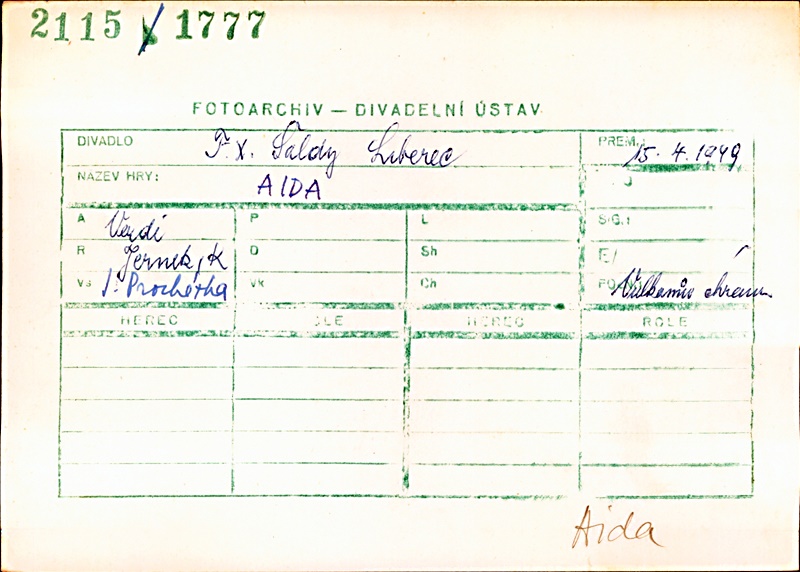 2115 1777
FOTOARCHIV — DIVADELNÍ ÚSTAV
DIVADLO F. X. Šaldy Liberec PREM.: 15. 4. 1949
NÁZEV HRY: AIDA
A Verdi P L SIG.:
R Jernek, K D Sh F/
Vs J. Procházka Vk Ch Vulkanův chrám
HEREC ROLE HEREC ROLE
Aida